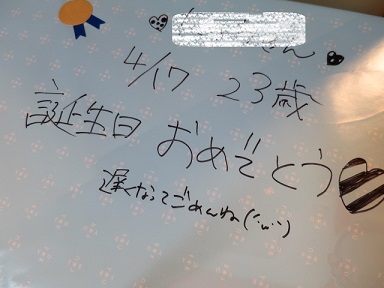 さん
4/17 23歳
誕生日 おめでとう
遅くなってごめんね(´・ω・`)